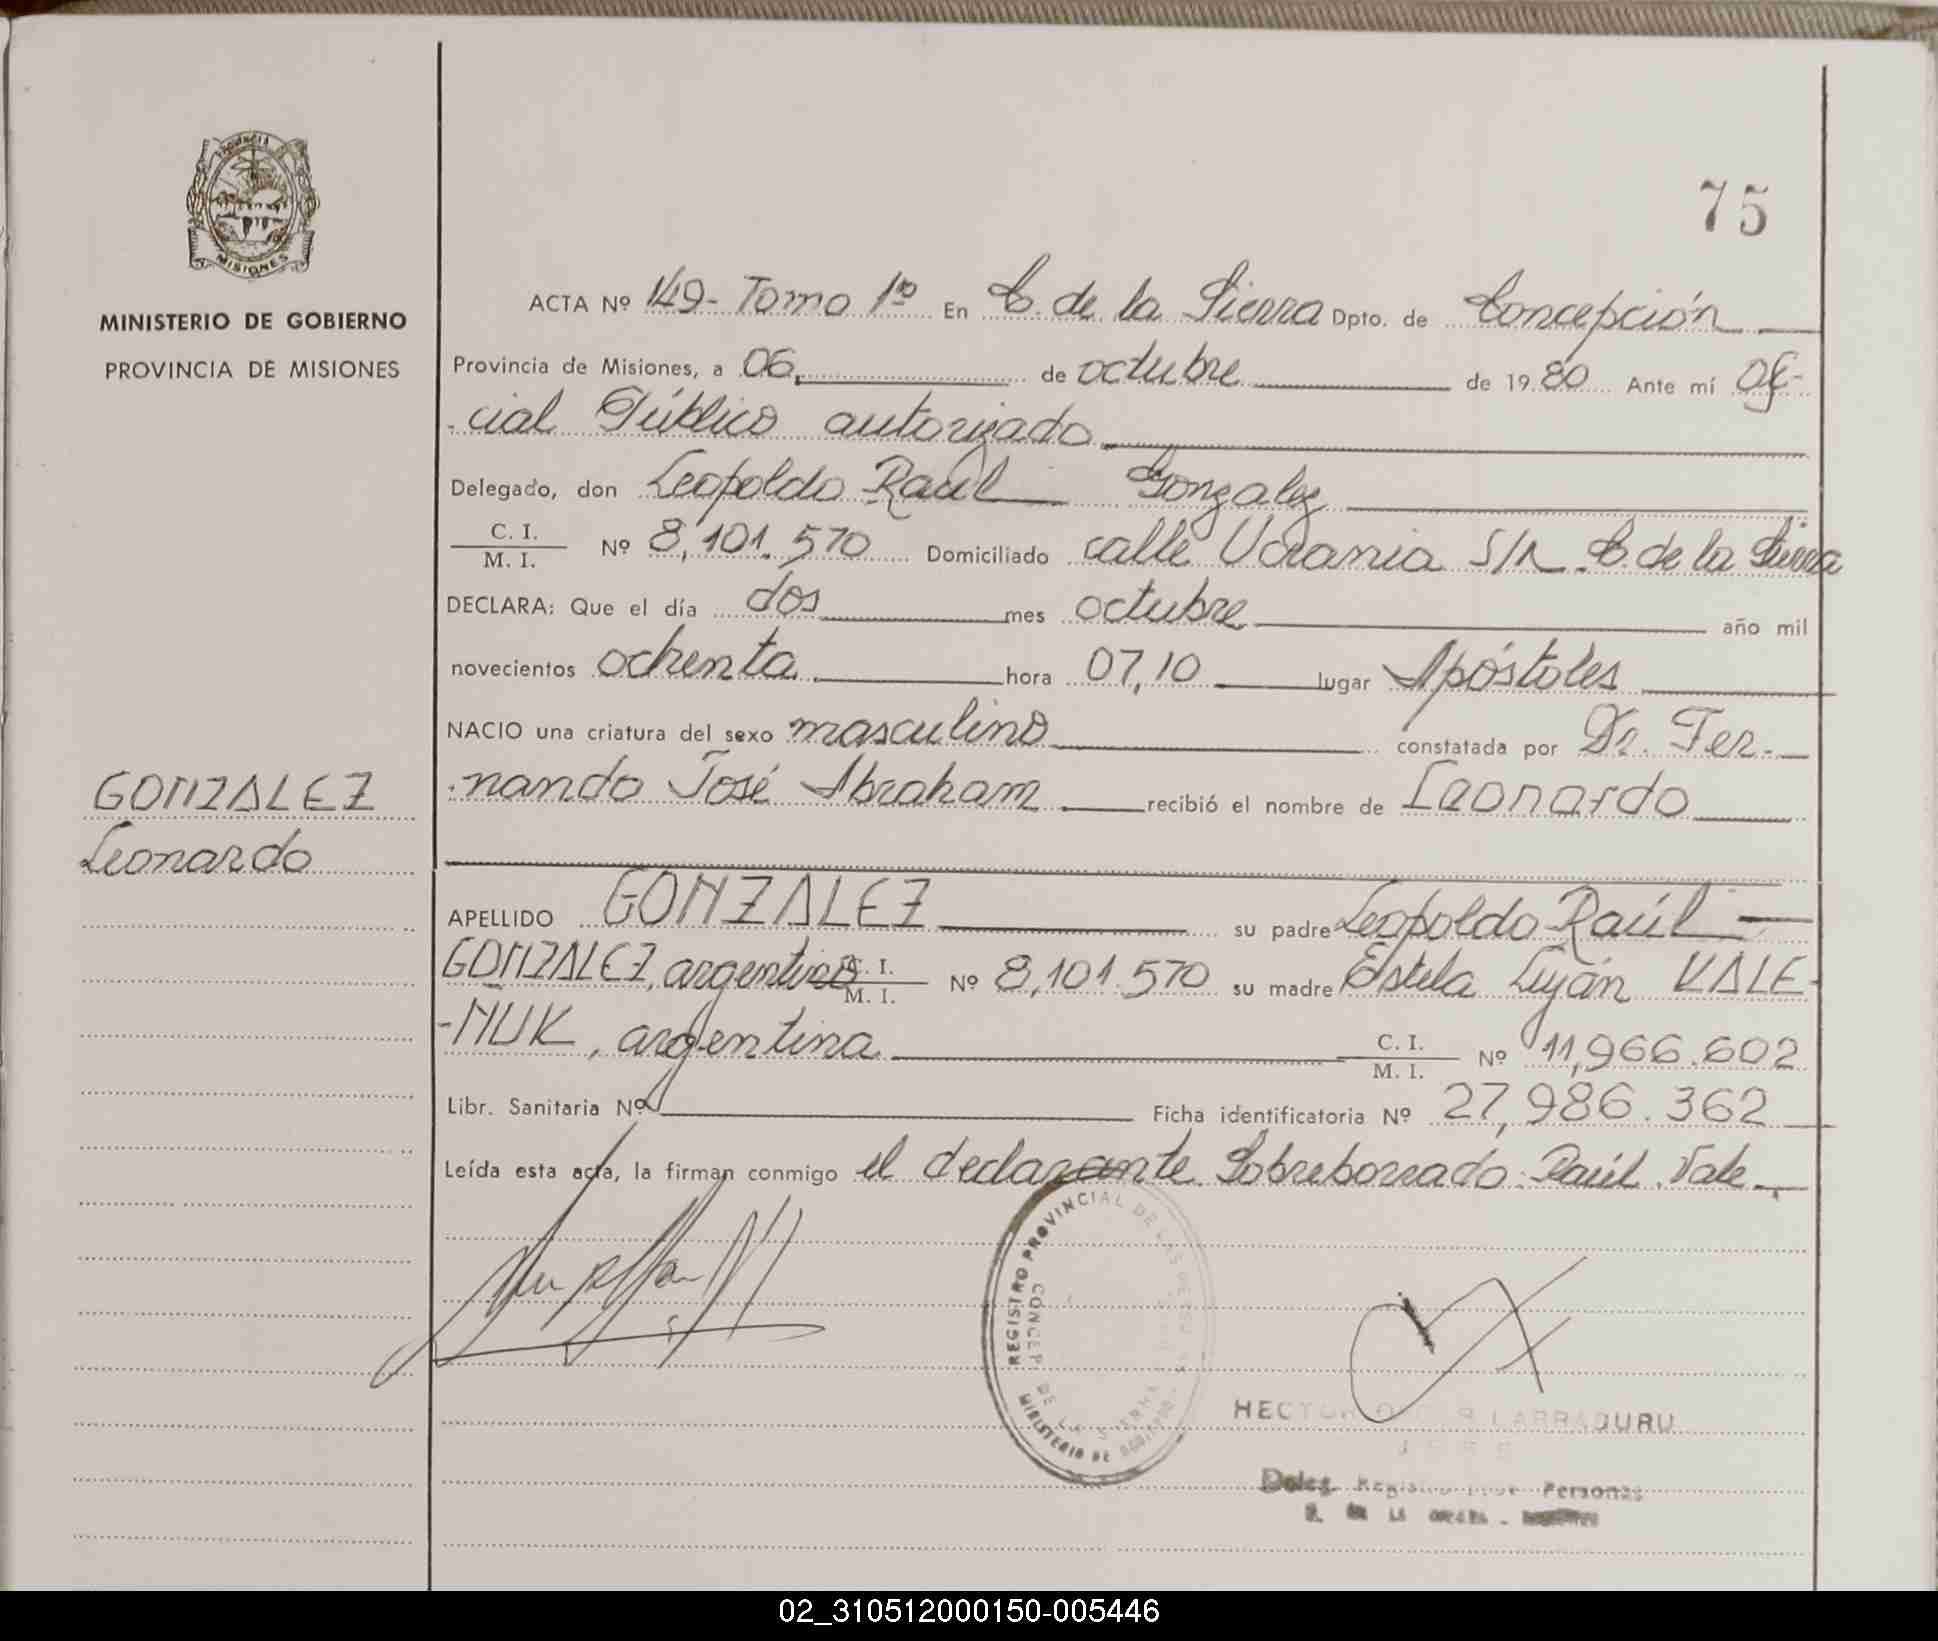 75
MINISTERIO DE GOBIERNO
PROVINCIA DE MISIONES
MISIONES
ACTA Nº 149- Tomo 1º En C. de la Sierra Dpto. de Concepción
Provincia de Misiones, a 06, de octubre de 1980 Ante mí Ofi-
cial Público autorizado
Delegado, don Leopoldo Raúl Gonzalez
C. I. / M. I. Nº 8,101.570 Domiciliado calle Ucrania S/N C. de la Sierra
DECLARA: Que el día dos mes octubre año mil
novecientos ochenta hora 07,10 lugar Apóstoles
NACIO una criatura del sexo masculino constatada por Dr. Fer-
nando José Abraham recibió el nombre de Leonardo
GONZALEZ
Leonardo
APELLIDO GONZALEZ su padre Leopoldo Raúl
GONZALEZ, argentino C. I. / M. I. Nº 8,101.570 su madre Estela Luján KALE-
-ÑUK, argentina C. I. / M. I. Nº 11,966.602
Libr. Sanitaria Nº Ficha identificatoria Nº 27,986.362
Leída esta acta, la firman conmigo el declarante Sobreborrado: Raúl. Vale
REGISTRO PROVINCIAL DE LAS PERSONAS
CONCEP. DE LA SIERRA
MINISTERIO DE GOBIERNO
HECTOR LARRABURU
JEFE
Deleg. Registro Prov. Personas
02_310512000150-005446